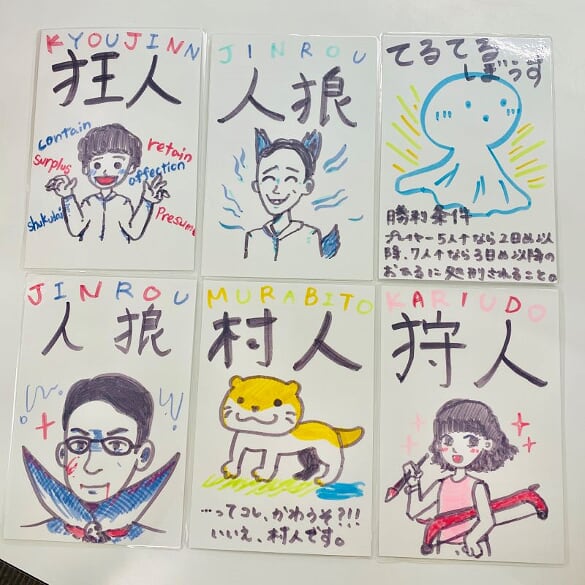 KYOUJINN
狂人
contain
surplus
retain
affection
shukudai
Presume
JINROU
人狼
てるてる
ぼうず
勝利条件
プレイヤー5人↑なら2日め以
降、7人↑なら3日め以降の
おひるに処刑されること。
JINROU
人狼
MURABITO
村人
…ってコレ、かわうそ?!!
いいえ、村人です。
KARIUDO
狩人